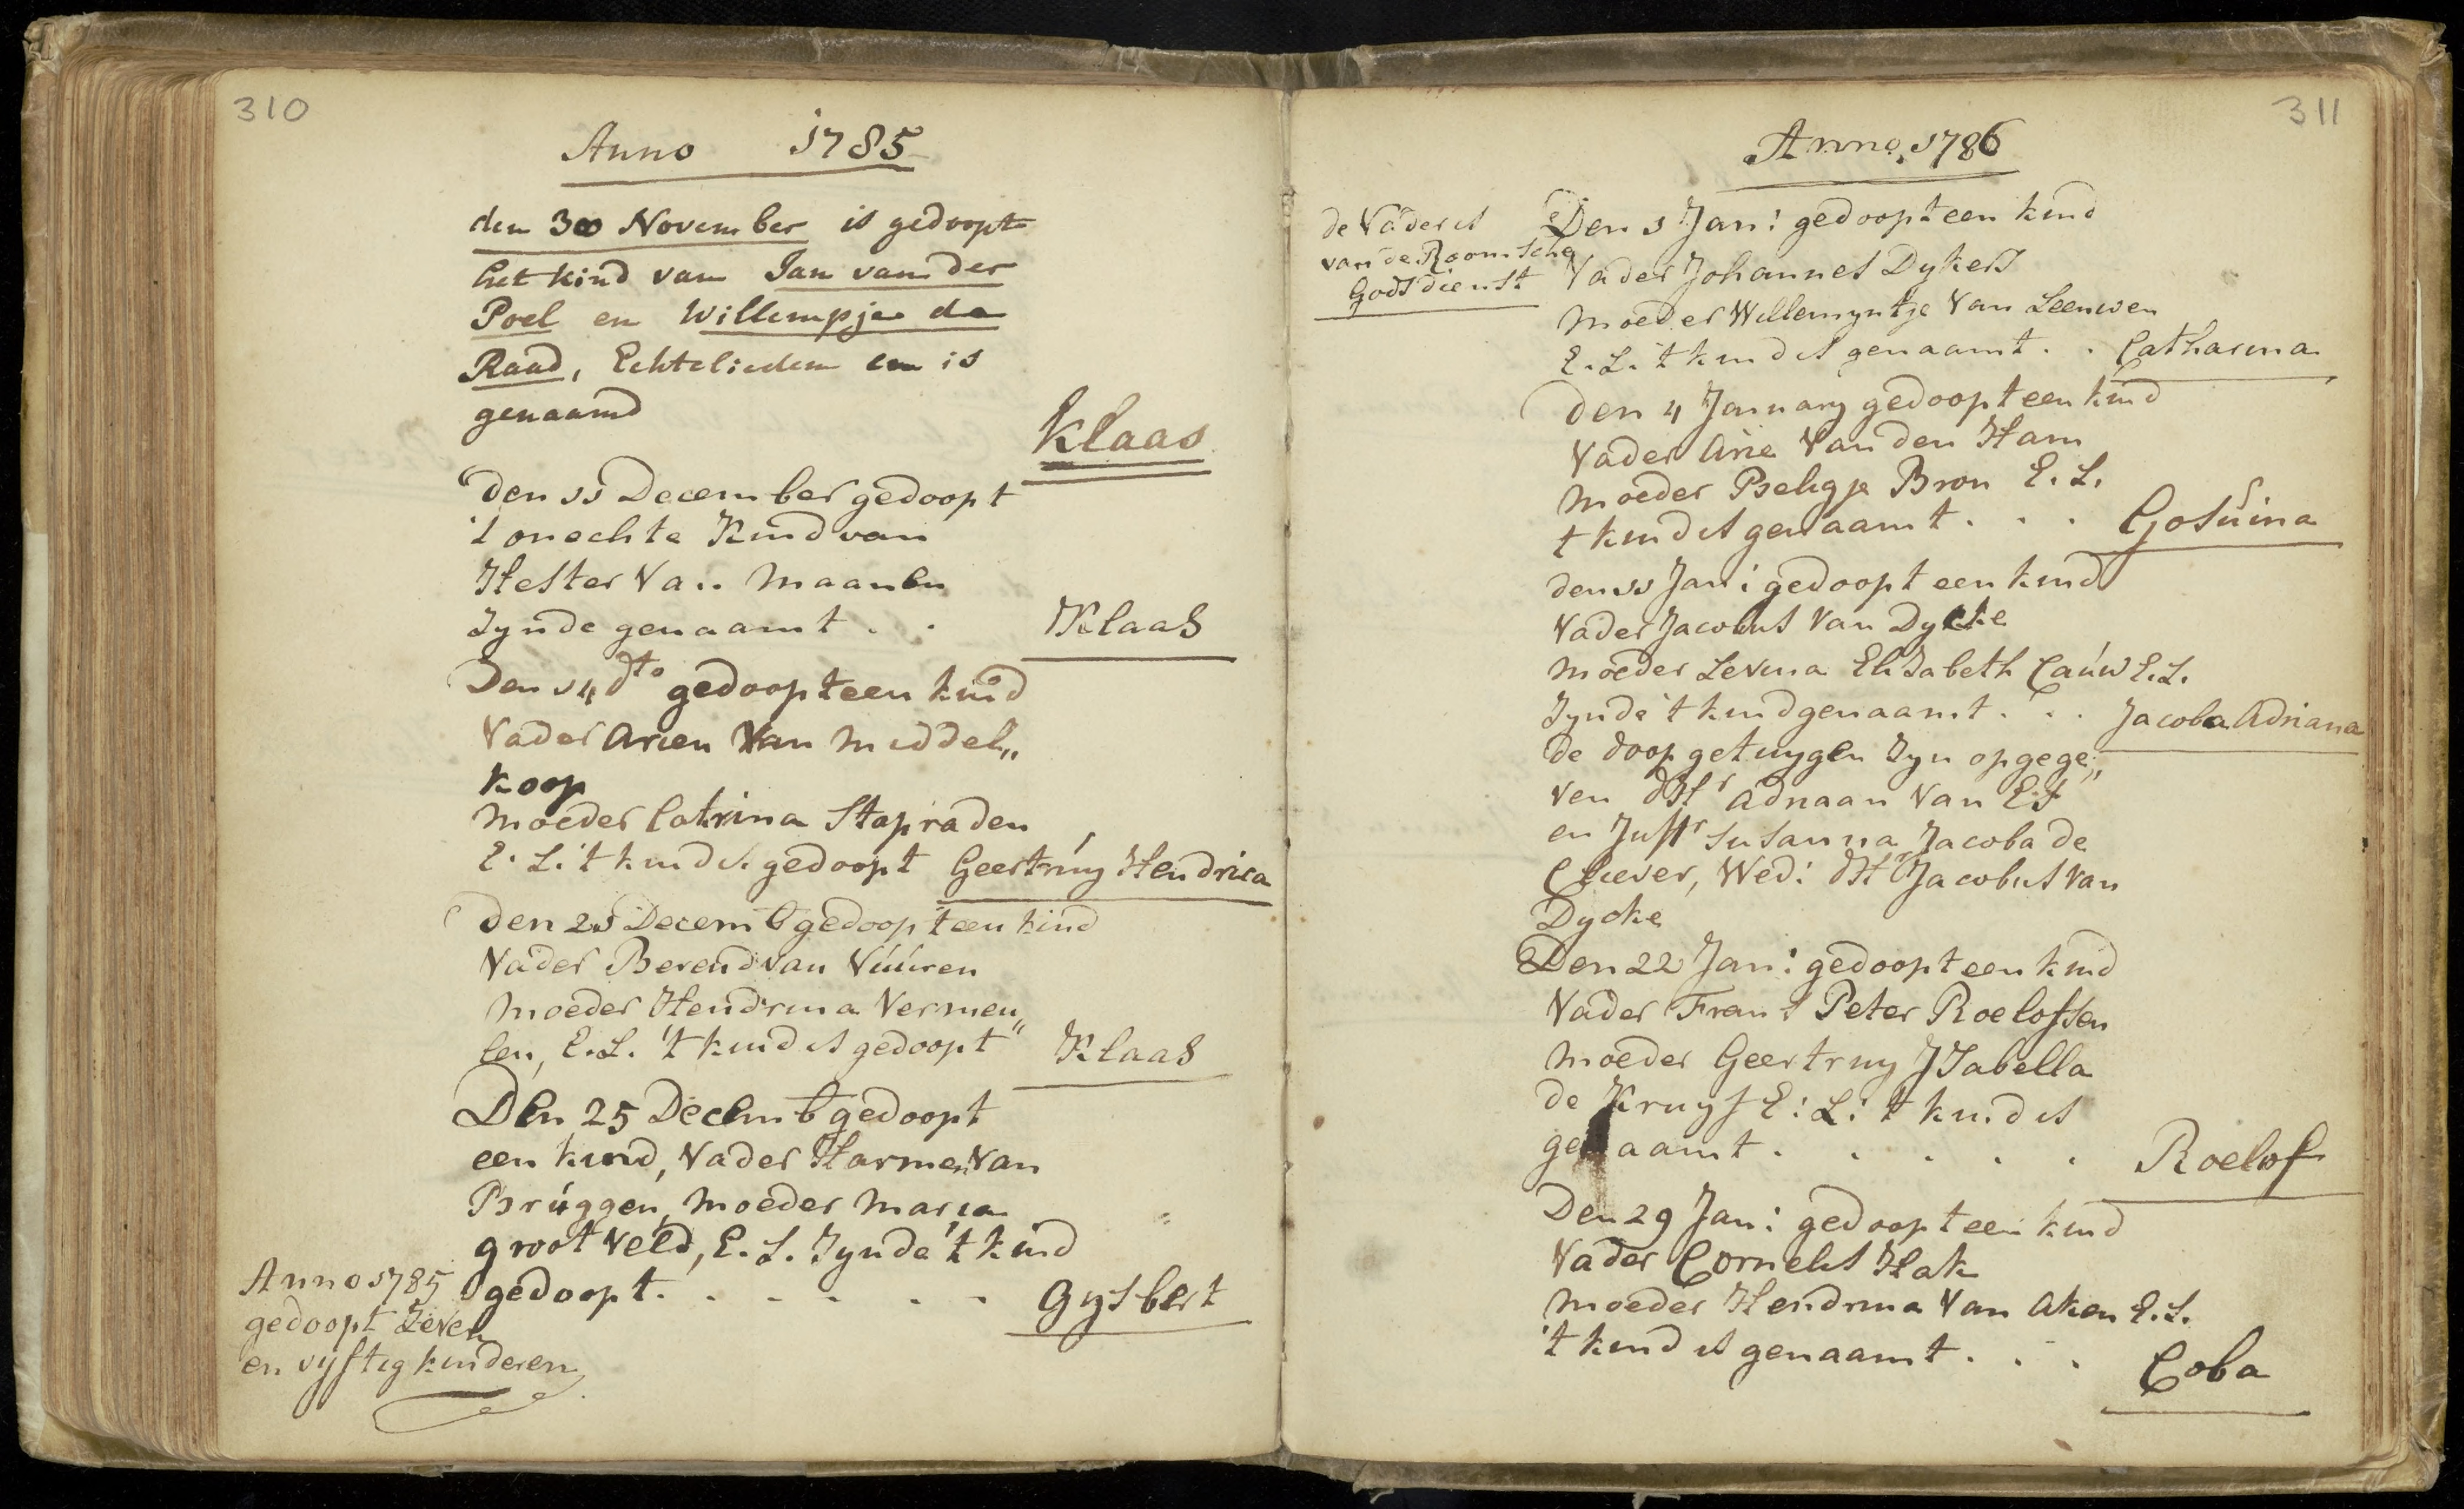 310
Anno 1785
den 30 November is gedoopt
het kind van Jan van der
Poel en Willempje de
Raad, Echtelieden en is
genaamd
Klaas
Den 11 December gedoopt
't onechte Kind van
Hester Van Maanen
Zynde genaamt . .
Klaas
Den 14 dto gedoopt een kind
Vader Arien Van Middel„
koop
Moeder Catrina Stapraden
E. L. 't kind is gedoopt Geertruy Hendrica
Den 25 Decemb gedoopt een kind
Vader Berend van Vuuren
Moeder Hendrina Vermeu„
len, E. L. 't kind is gedoopt Klaas
Den 25 Decemb gedoopt
een kind, Vader Harmen Van
Bruggen, Moeder Maria
groot Veld, E. L. Zynde 't kind
gedoopt. . . . . . Gysbert
Anno 1785
gedoopt Zeven
en vyftig kinderen
311
Anno 1786
de Vader is
van de Roomsche
Godsdienst
Den 1 Jan: gedoopt een kind
Vader Johannes Dykers
Moeder Willemyntje Van Leeuwen
E. L. 't kind is genaamt . . Catharina
Den 4 January gedoopt een kind
Vader Arie Van den Ham
Moeder Beligje Bron E. L.
t kind is genaamt . . . Gosuina
den 11 Jan: gedoopt een kind
Vader Jacobus Van Dycke
Moeder Levina Elisabeth Cauw E. L.
Zynde 't kind genaamt . . . Jacoba Adriana
de doop getuygen Zyn opgege„
ven dHr Adriaan Van Es
en Juffr Susanna Jacoba de
Cliever, Wed: dHr Jacobus Van
Dycke
Den 22 Jan: gedoopt een kind
Vader Frans Peter Roelofsen
Moeder Geertruy Isabella
de Kruyf E: L: t kind is
genaamt . . . . . Roelof
Den 29 Jan: gedoopt een kind
Vader Cornelis Hak
Moeder Hendrina Van Aken E. L.
't kind is genaamt . . . Coba